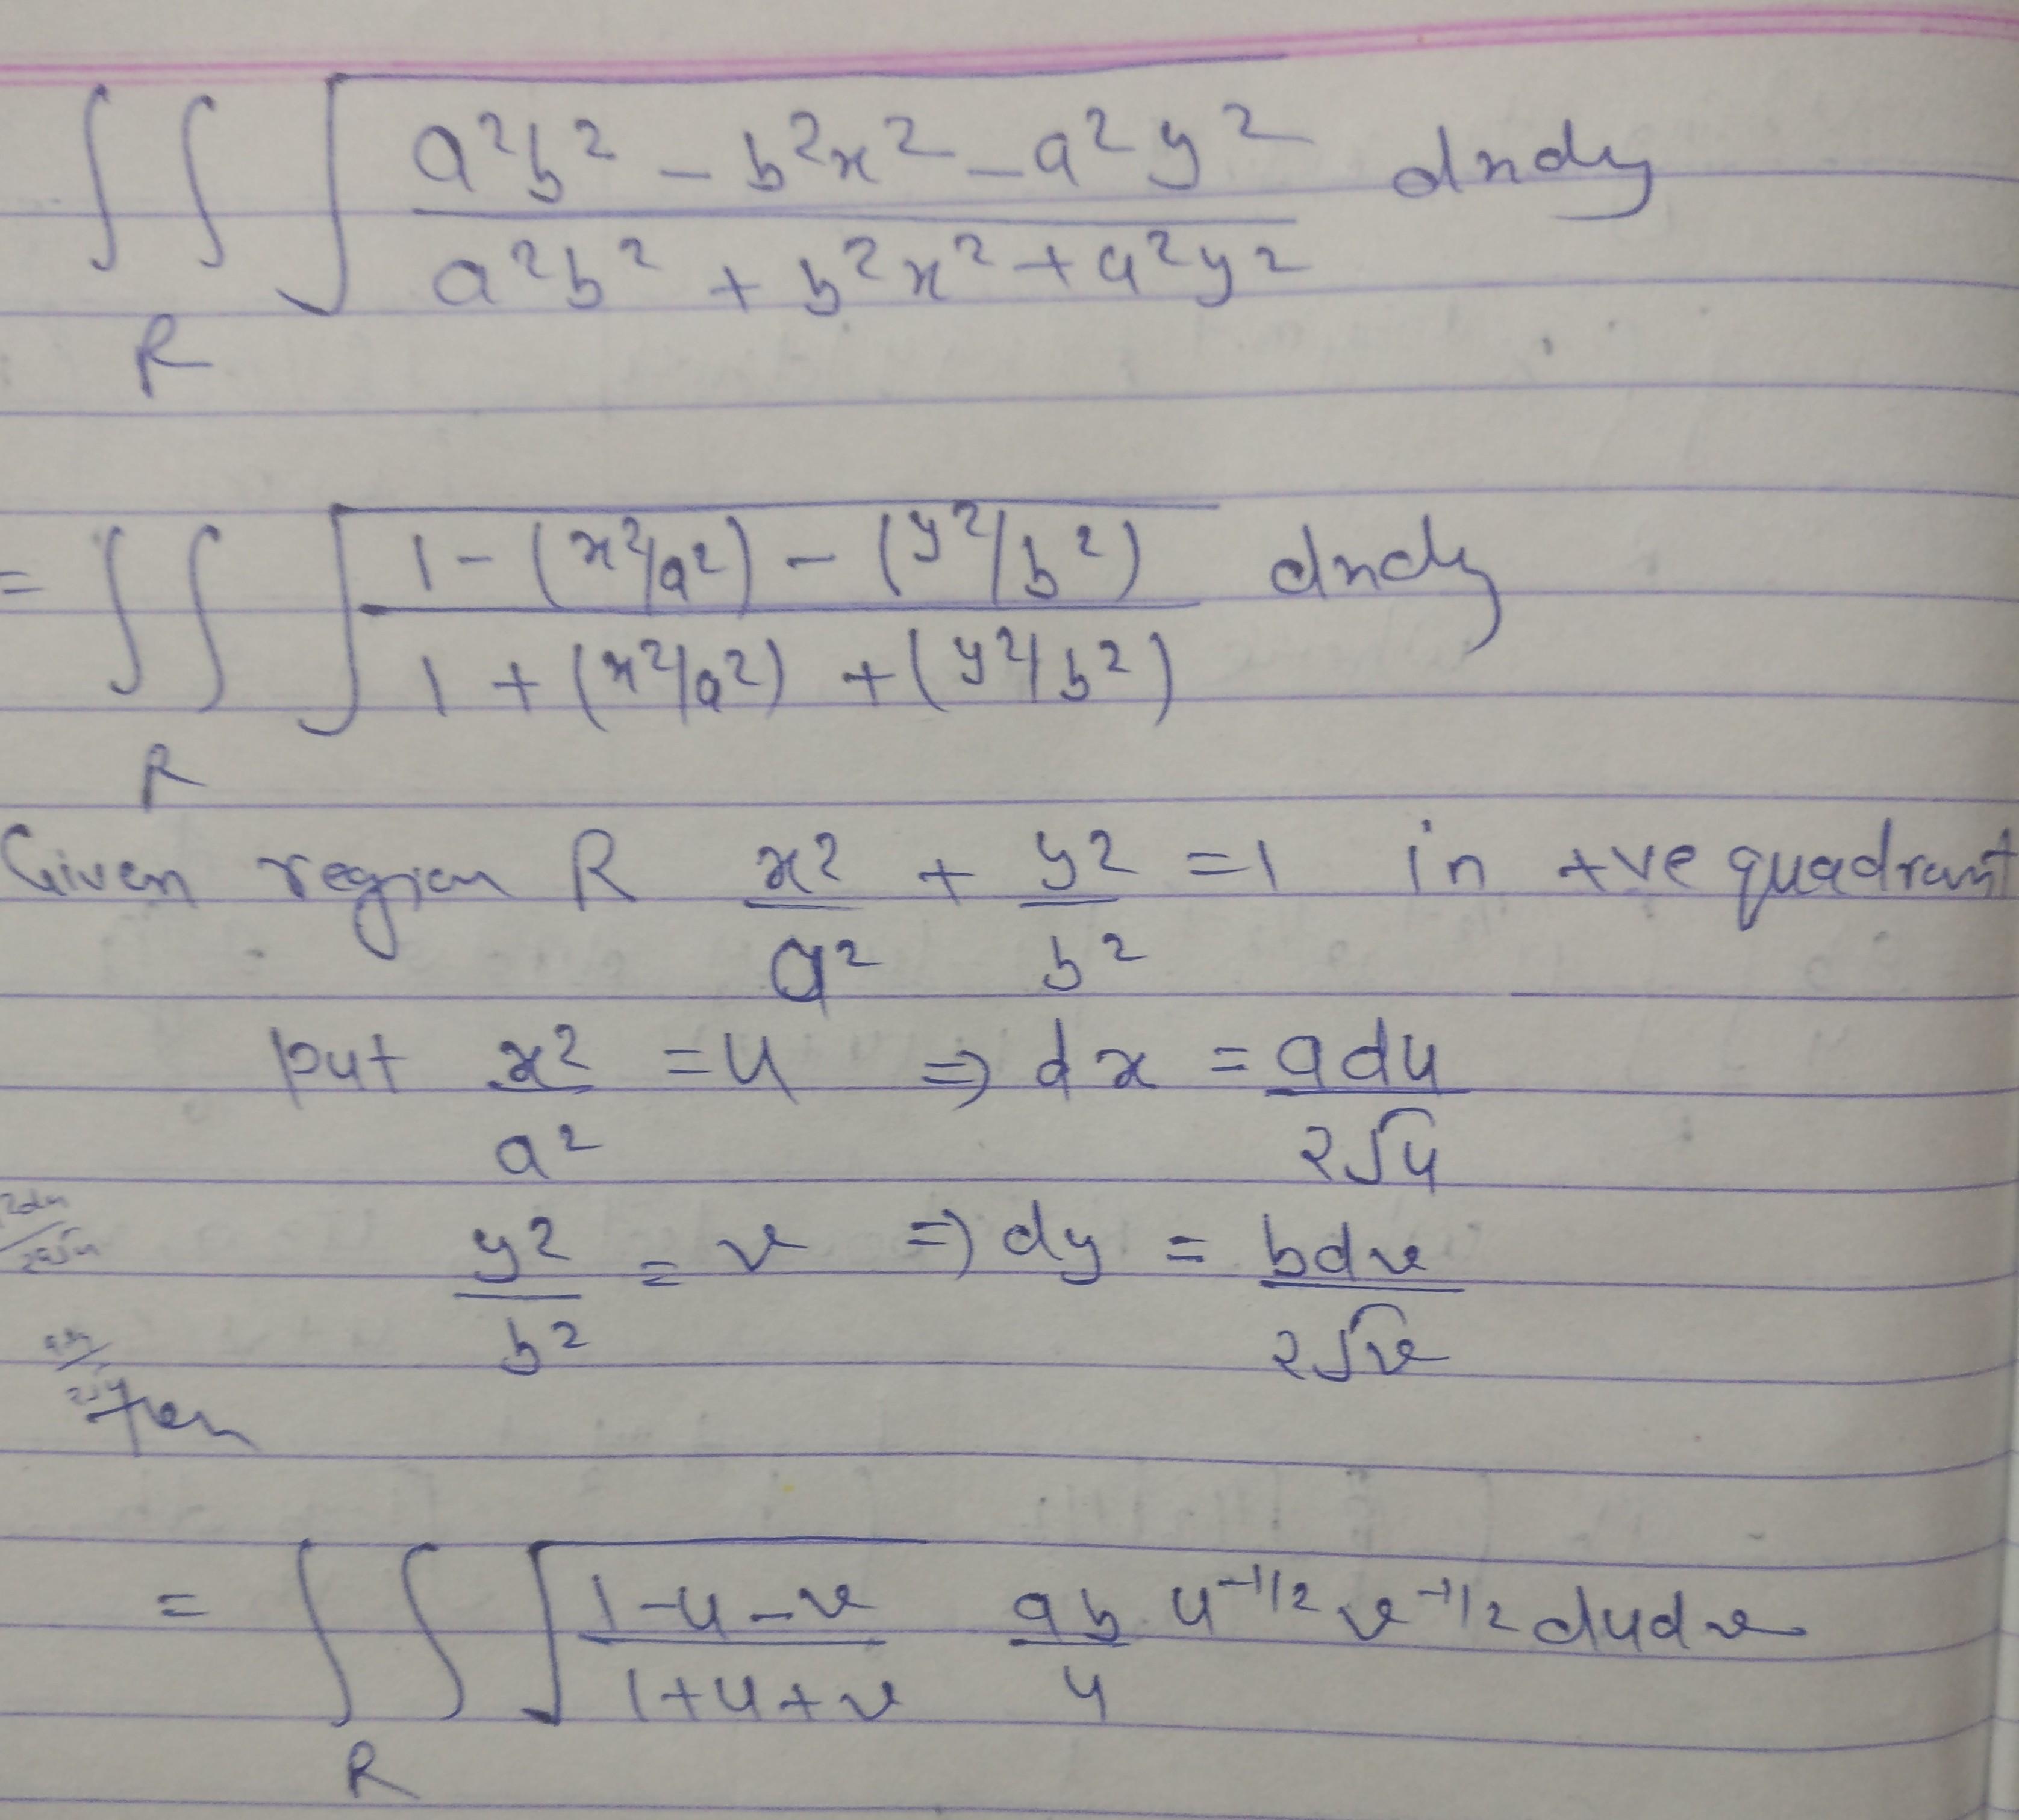 ∫∫ √((a²b² - b²x² - a²y²)/(a²b² + b²x² + a²y²)) dxdy
R
= ∫∫ √((1 - (x²/a²) - (y²/b²))/(1 + (x²/a²) + (y²/b²))) dxdy
R
Given region R x²/a² + y²/b² = 1 in +ve quadrant
put x²/a² = u ⇒ dx = adu/2√u
y²/b² = v ⇒ dy = bdv/2√v
= ∫∫ √((1-u-v)/(1+u+v)) ab/4 u^-1/2 v^-1/2 dudv
R